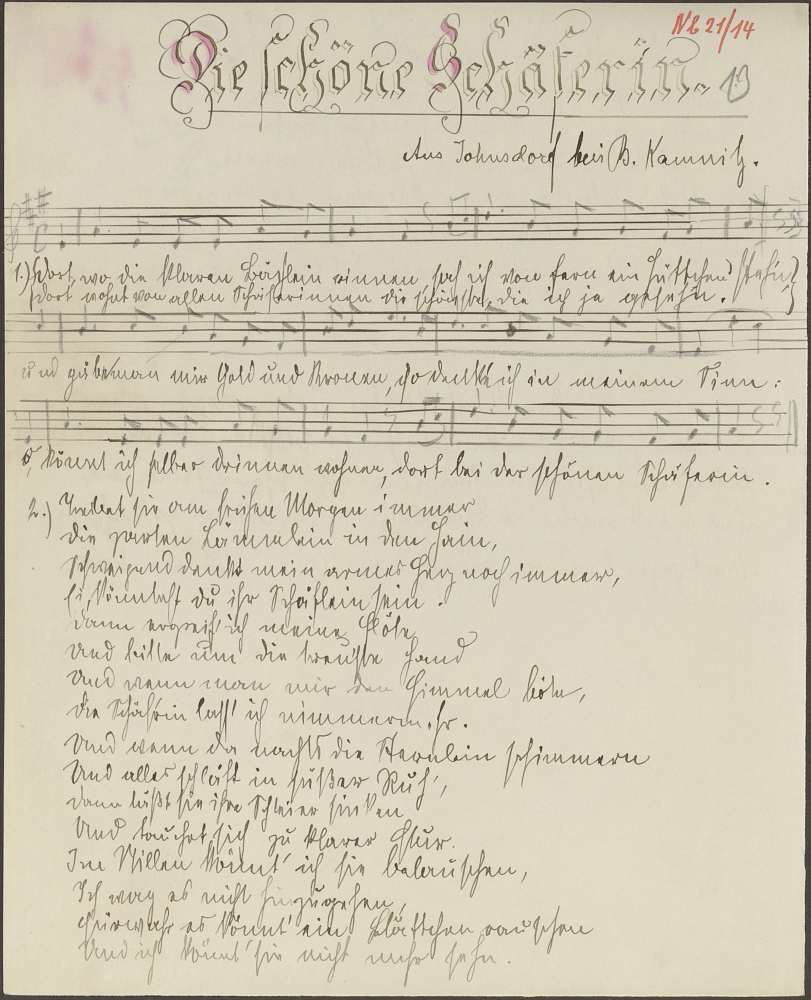 NL 21/14
Die schöne Schäferin. 13
Aus Johnsdorf bei B. Kamnitz.
1.) Dort, wo die klaren Bächlein rinnen sah ich von fern ein Hüttchen stehn
dort wohnt von allen Schäferinnen die schönste, die ich je gesehn.
und gäbe man mir Gold und Kronen, so denk ich in meinem Sinn:
O, könnt ich selber drinnen wohnen, dort bei der schönen Schäferin.
2.) Treibet sie am frühen Morgen immer
Die zarten Lämmelein in den Hain,
Schweigend denkt mein armes Herz noch immer,
Ei, könntest du ihr Schäflein sein.
Dann ergreif' ich meine Flöte
Und bitte um die treuste Hand
Und wenn man mir den Himmel böte,
Die Schäf'rin lass' ich nimmermehr.
Und wenn da nachts die Sternlein schimmern
Und alles schläft in süßer Ruh',
Dann läßt sie ihre Schleier sinken
Und taucht sich zu klarer Flur.
Im Stillen könnt' ich sie belauschen,
Ich wag es nicht hinzugehen,
Fürwahr es könnt' ein Blättchen rauschen
Und ich könnt' sie nicht mehr sehn.